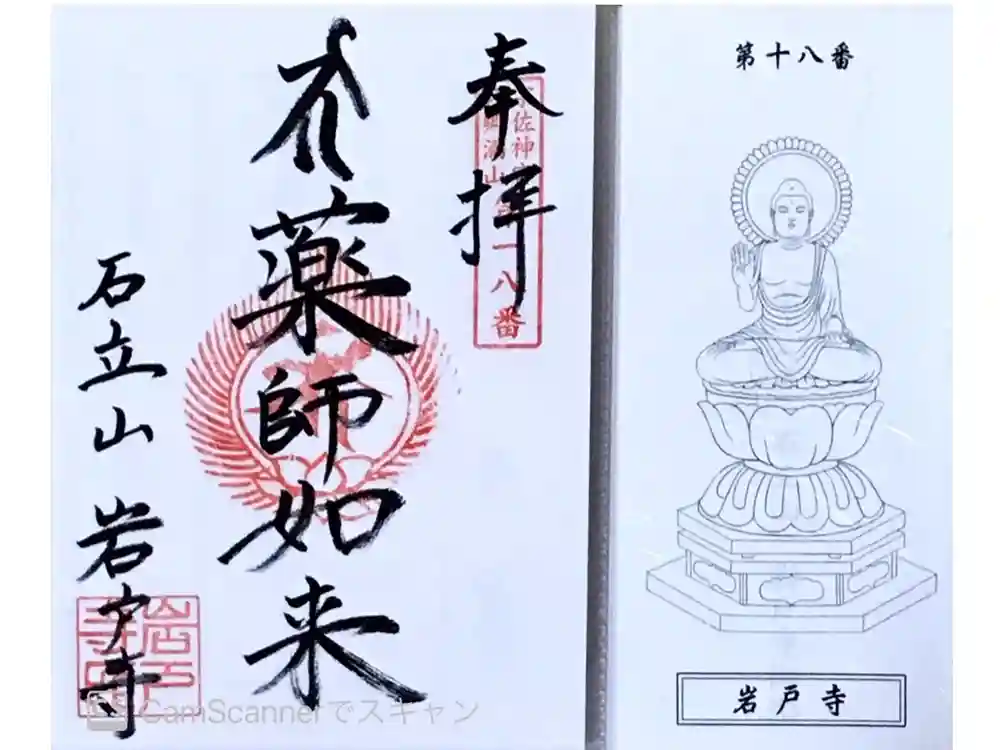 第十八番
岩戸寺
奉拝
薬師如来
石立山 岩戸寺
八番
岩戸
寺印
CamScannerでスキャン